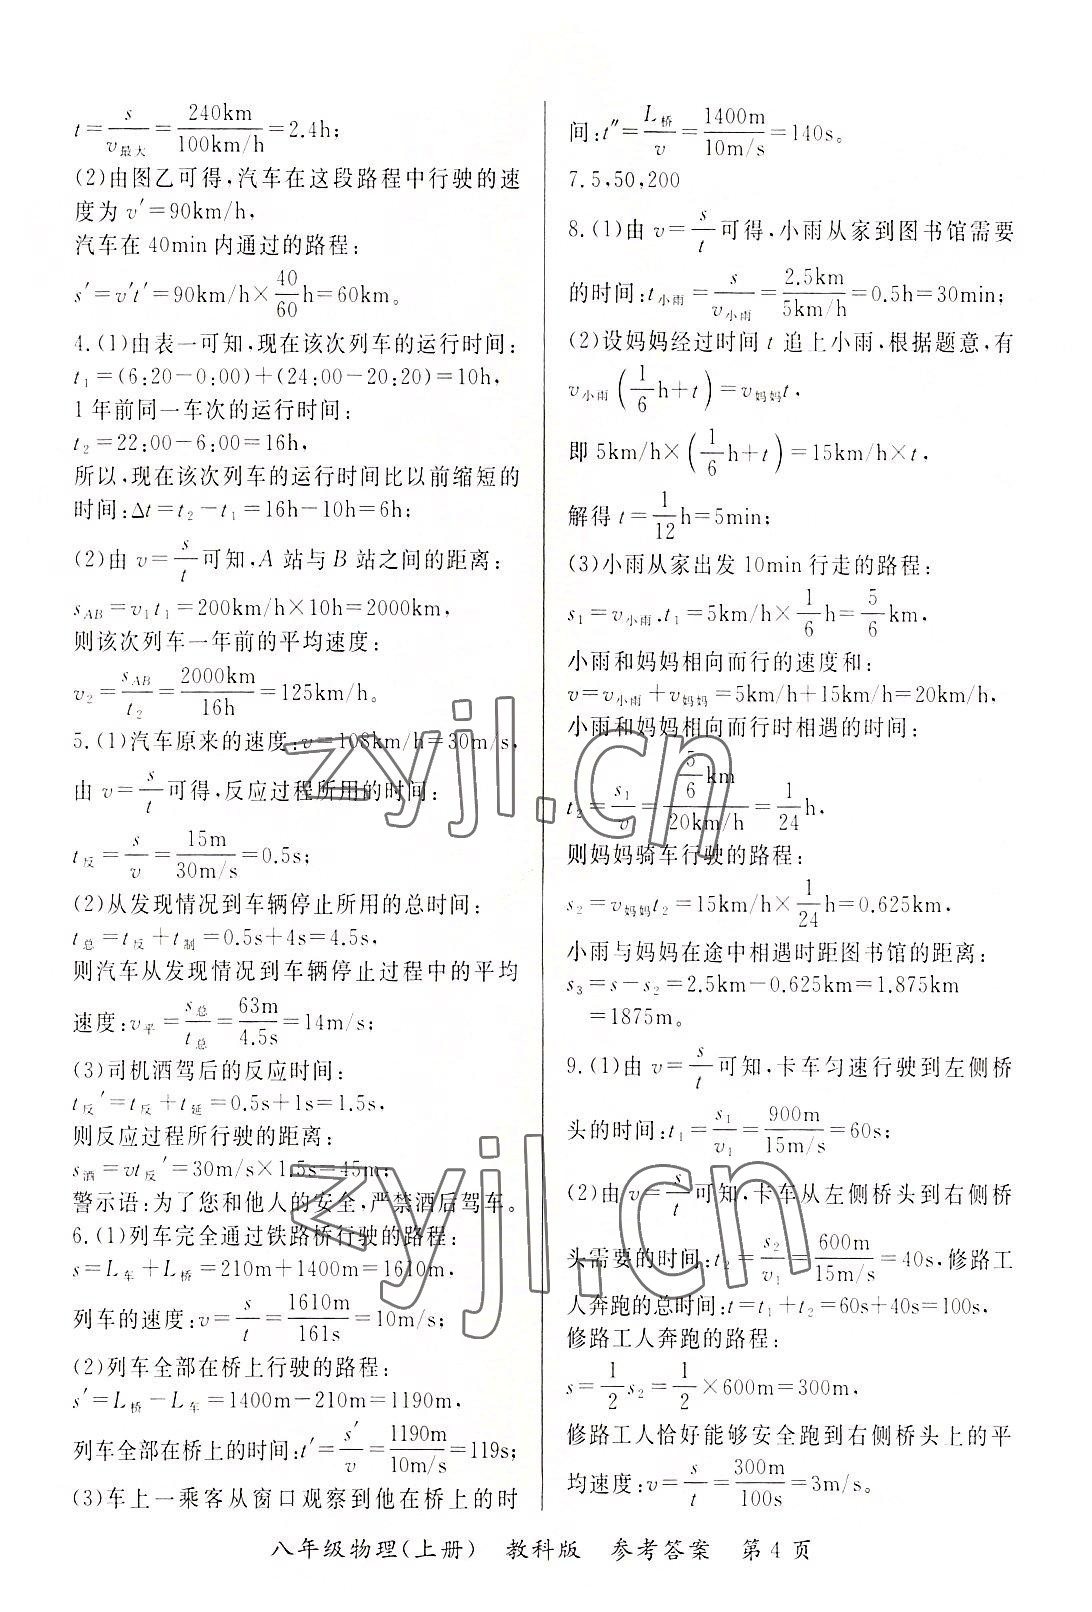 t=s/v最大=240km/100km/h=2.4h;
(2)由图乙可得,汽车在这段路程中行驶的速
度为 v′=90km/h,
汽车在 40min 内通过的路程:
s′=v′t′=90km/h×40/60h=60km。
4.(1)由表一可知,现在该次列车的运行时间:
t₁=(6:20-0:00)+(24:00-20:20)=10h,
1 年前同一车次的运行时间:
t₂=22:00-6:00=16h,
所以,现在该次列车的运行时间比以前缩短的
时间:Δt=t₂-t₁=16h-10h=6h;
(2)由 v=s/t可知,A 站与 B 站之间的距离:
s_AB=v₁t₁=200km/h×10h=2000km,
则该次列车一年前的平均速度:
v₂=s_AB/t₂=2000km/16h=125km/h。
5.(1)汽车原来的速度:v=108km/h=30m/s,
由 v=s/t可得,反应过程所用的时间:
t反=s/v=15m/30m/s=0.5s;
(2)从发现情况到车辆停止所用的总时间:
t总=t反+t制=0.5s+4s=4.5s,
则汽车从发现情况到车辆停止过程中的平均
速度:v平=s总/t总=63m/4.5s=14m/s;
(3)司机酒驾后的反应时间:
t反′=t反+t延=0.5s+1s=1.5s,
则反应过程所行驶的距离:
s酒=vt反′=30m/s×1.5s=45m;
警示语:为了您和他人的安全,严禁酒后驾车。
6.(1)列车完全通过铁路桥行驶的路程:
s=L车+L桥=210m+1400m=1610m,
列车的速度:v=s/t=1610m/161s=10m/s;
(2)列车全部在桥上行驶的路程:
s′=L桥-L车=1400m-210m=1190m,
列车全部在桥上的时间:t′=s′/v=1190m/10m/s=119s;
(3)车上一乘客从窗口观察到他在桥上的时
间:t″=L桥/v=1400m/10m/s=140s。
7.5,50,200
8.(1)由 v=s/t可得,小雨从家到图书馆需要
的时间:t小雨=s/v小雨=2.5km/5km/h=0.5h=30min;
(2)设妈妈经过时间 t 追上小雨,根据题意,有
v小雨(1/6h+t)=v妈妈t,
即 5km/h×(1/6h+t)=15km/h×t,
解得 t=1/12h=5min;
(3)小雨从家出发 10min 行走的路程:
s₁=v小雨.t₁=5km/h×1/6h=5/6km,
小雨和妈妈相向而行的速度和:
v=v小雨+v妈妈=5km/h+15km/h=20km/h,
小雨和妈妈相向而行时相遇的时间:
t₂=s₁/v=5/6km/20km/h=1/24h,
则妈妈骑车行驶的路程:
s₂=v妈妈t₂=15km/h×1/24h=0.625km,
小雨与妈妈在途中相遇时距图书馆的距离:
s₃=s-s₂=2.5km-0.625km=1.875km
=1875m。
9.(1)由 v=s/t可知,卡车匀速行驶到左侧桥
头的时间:t₁=s₁/v₁=900m/15m/s=60s;
(2)由 v=s/t可知,卡车从左侧桥头到右侧桥
头需要的时间:t₂=s₂/v₁=600m/15m/s=40s,修路工
人奔跑的总时间:t=t₁+t₂=60s+40s=100s,
修路工人奔跑的路程:
s=1/2s₂=1/2×600m=300m,
修路工人恰好能够安全跑到右侧桥头上的平
均速度:v=s/t=300m/100s=3m/s。
八年级物理(上册) 教科版 参考答案 第 4 页
zyjl.cn
zyjl.cn